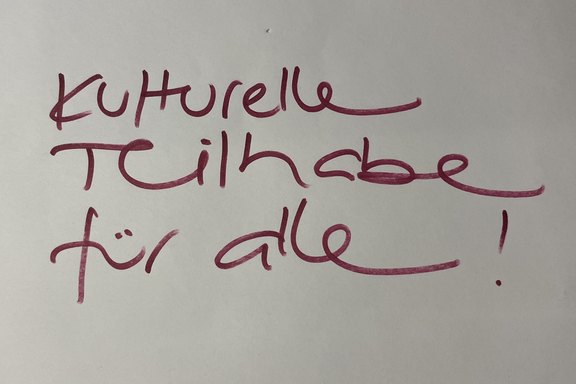 Kulturelle
Teilhabe
für alle!